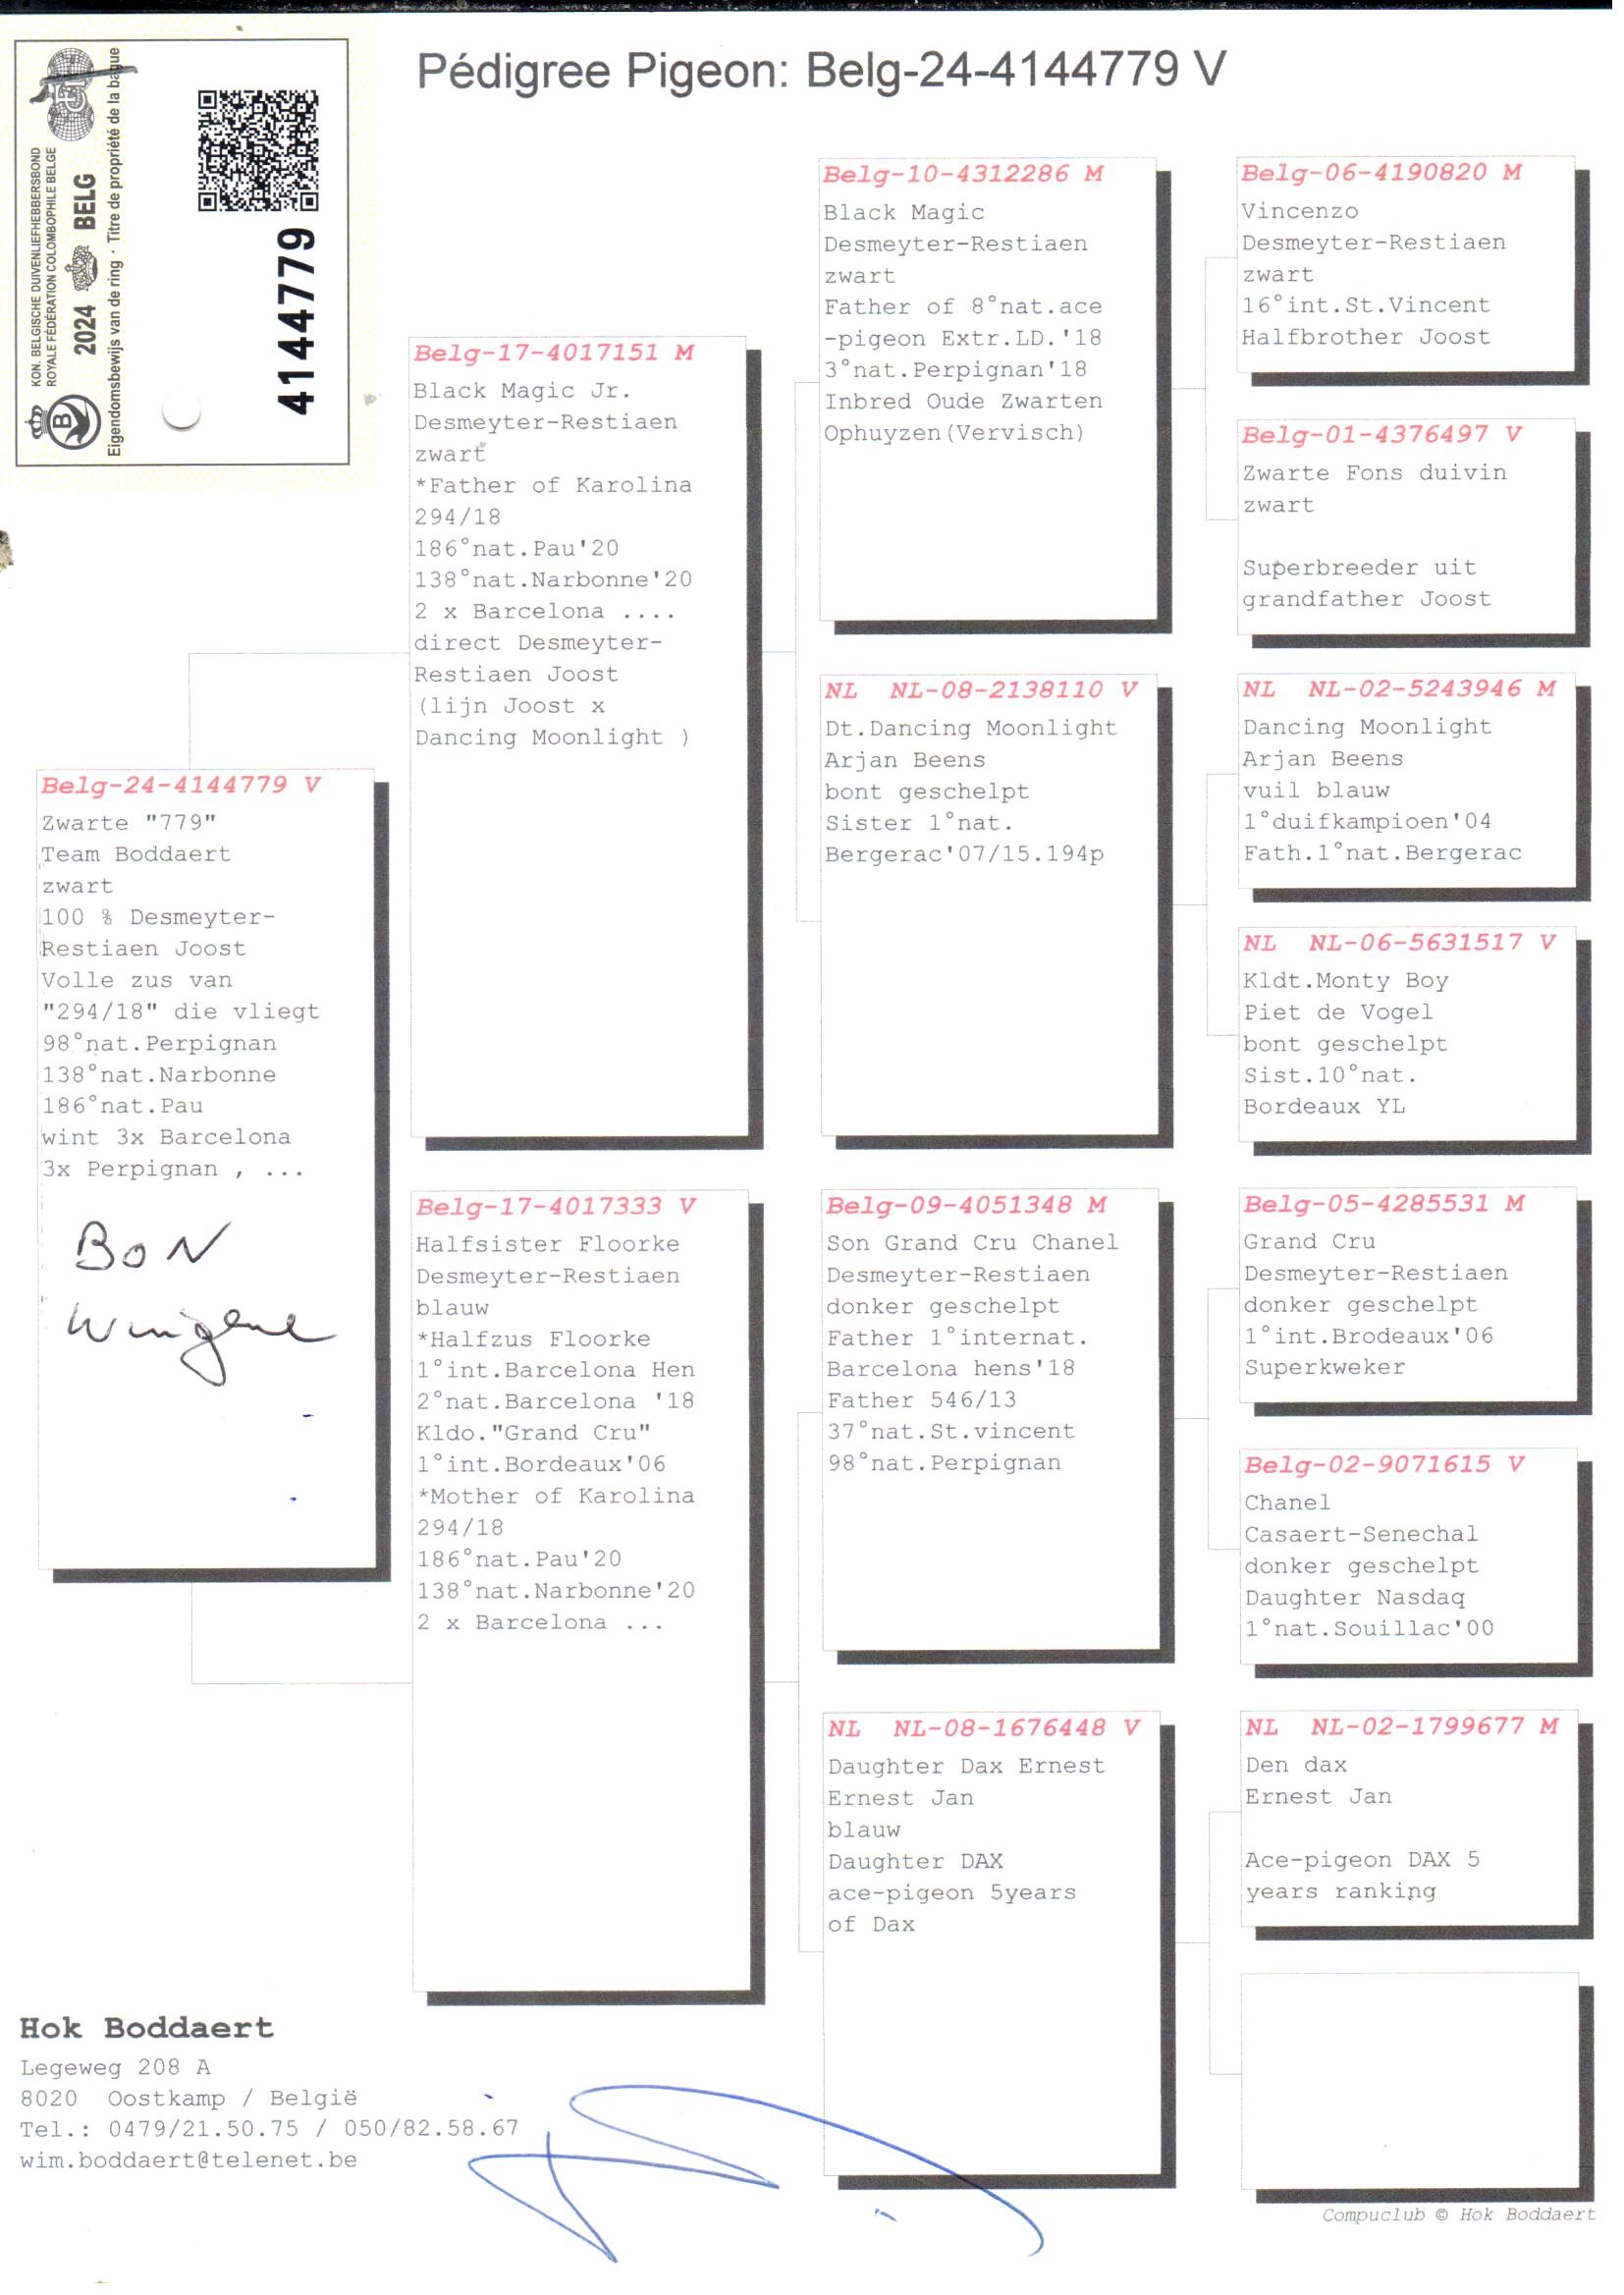 Pédigree Pigeon: Belg-24-4144779 V
KON. BELGISCHE DUIVENLIEFHEBBERSBOND
ROYALE FÉDÉRATION COLOMBOPHILE BELGE
2024 BELG
Eigendomsbewijs van de ring · Titre de propriété de la bague
4144779
B
Belg-24-4144779 V
Zwarte "779"
Team Boddaert
zwart
100 % Desmeyter-
Restiaen Joost
Volle zus van
"294/18" die vliegt
98°nat.Perpignan
138°nat.Narbonne
186°nat.Pau
wint 3x Barcelona
3x Perpignan , ...
BON
Wingene
Belg-17-4017151 M
Black Magic Jr.
Desmeyter-Restiaen
zwart
*Father of Karolina
294/18
186°nat.Pau'20
138°nat.Narbonne'20
2 x Barcelona ....
direct Desmeyter-
Restiaen Joost
(lijn Joost x
Dancing Moonlight )
Belg-17-4017333 V
Halfsister Floorke
Desmeyter-Restiaen
blauw
*Halfzus Floorke
1°int.Barcelona Hen
2°nat.Barcelona '18
Kldo."Grand Cru"
1°int.Bordeaux'06
*Mother of Karolina
294/18
186°nat.Pau'20
138°nat.Narbonne'20
2 x Barcelona ...
Belg-10-4312286 M
Black Magic
Desmeyter-Restiaen
zwart
Father of 8°nat.ace
-pigeon Extr.LD.'18
3°nat.Perpignan'18
Inbred Oude Zwarten
Ophuyzen(Vervisch)
NL NL-08-2138110 V
Dt.Dancing Moonlight
Arjan Beens
bont geschelpt
Sister 1°nat.
Bergerac'07/15.194p
Belg-09-4051348 M
Son Grand Cru Chanel
Desmeyter-Restiaen
donker geschelpt
Father 1°internat.
Barcelona hens'18
Father 546/13
37°nat.St.vincent
98°nat.Perpignan
NL NL-08-1676448 V
Daughter Dax Ernest
Ernest Jan
blauw
Daughter DAX
ace-pigeon 5years
of Dax
Belg-06-4190820 M
Vincenzo
Desmeyter-Restiaen
zwart
16°int.St.Vincent
Halfbrother Joost
Belg-01-4376497 V
Zwarte Fons duivin
zwart
Superbreeder uit
grandfather Joost
NL NL-02-5243946 M
Dancing Moonlight
Arjan Beens
vuil blauw
1°duifkampioen'04
Fath.1°nat.Bergerac
NL NL-06-5631517 V
Kldt.Monty Boy
Piet de Vogel
bont geschelpt
Sist.10°nat.
Bordeaux YL
Belg-05-4285531 M
Grand Cru
Desmeyter-Restiaen
donker geschelpt
1°int.Brodeaux'06
Superkweker
Belg-02-9071615 V
Chanel
Casaert-Senechal
donker geschelpt
Daughter Nasdaq
1°nat.Souillac'00
NL NL-02-1799677 M
Den dax
Ernest Jan
Ace-pigeon DAX 5
years ranking
Hok Boddaert
Legeweg 208 A
8020 Oostkamp / België
Tel.: 0479/21.50.75 / 050/82.58.67
wim.boddaert@telenet.be
Compuclub © Hok Boddaert